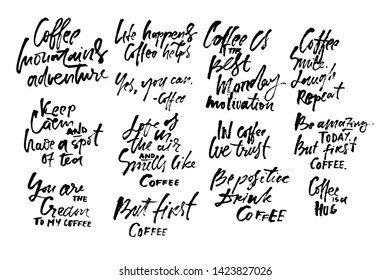 Coffee
mountains
adventure
Keep
Calm AND
have a spot
of tea
You are
THE
Cream
TO MY COFFEE
Life happens
Coffee helps
Yes, you can.
-Coffee
Life is
in
the air
AND
Smells like
COFFEE
But first
COFFEE
Coffee is
THE
Best
Monday
motivation
IN coffee
we trust
Be positive
Drink
COFFEE
Coffee
Smile.
Laugh
Repeat
Be amazing
TODAY.
But first
COFFEE.
Coffee
is a
HUG
shutterstock.com · 1423827026